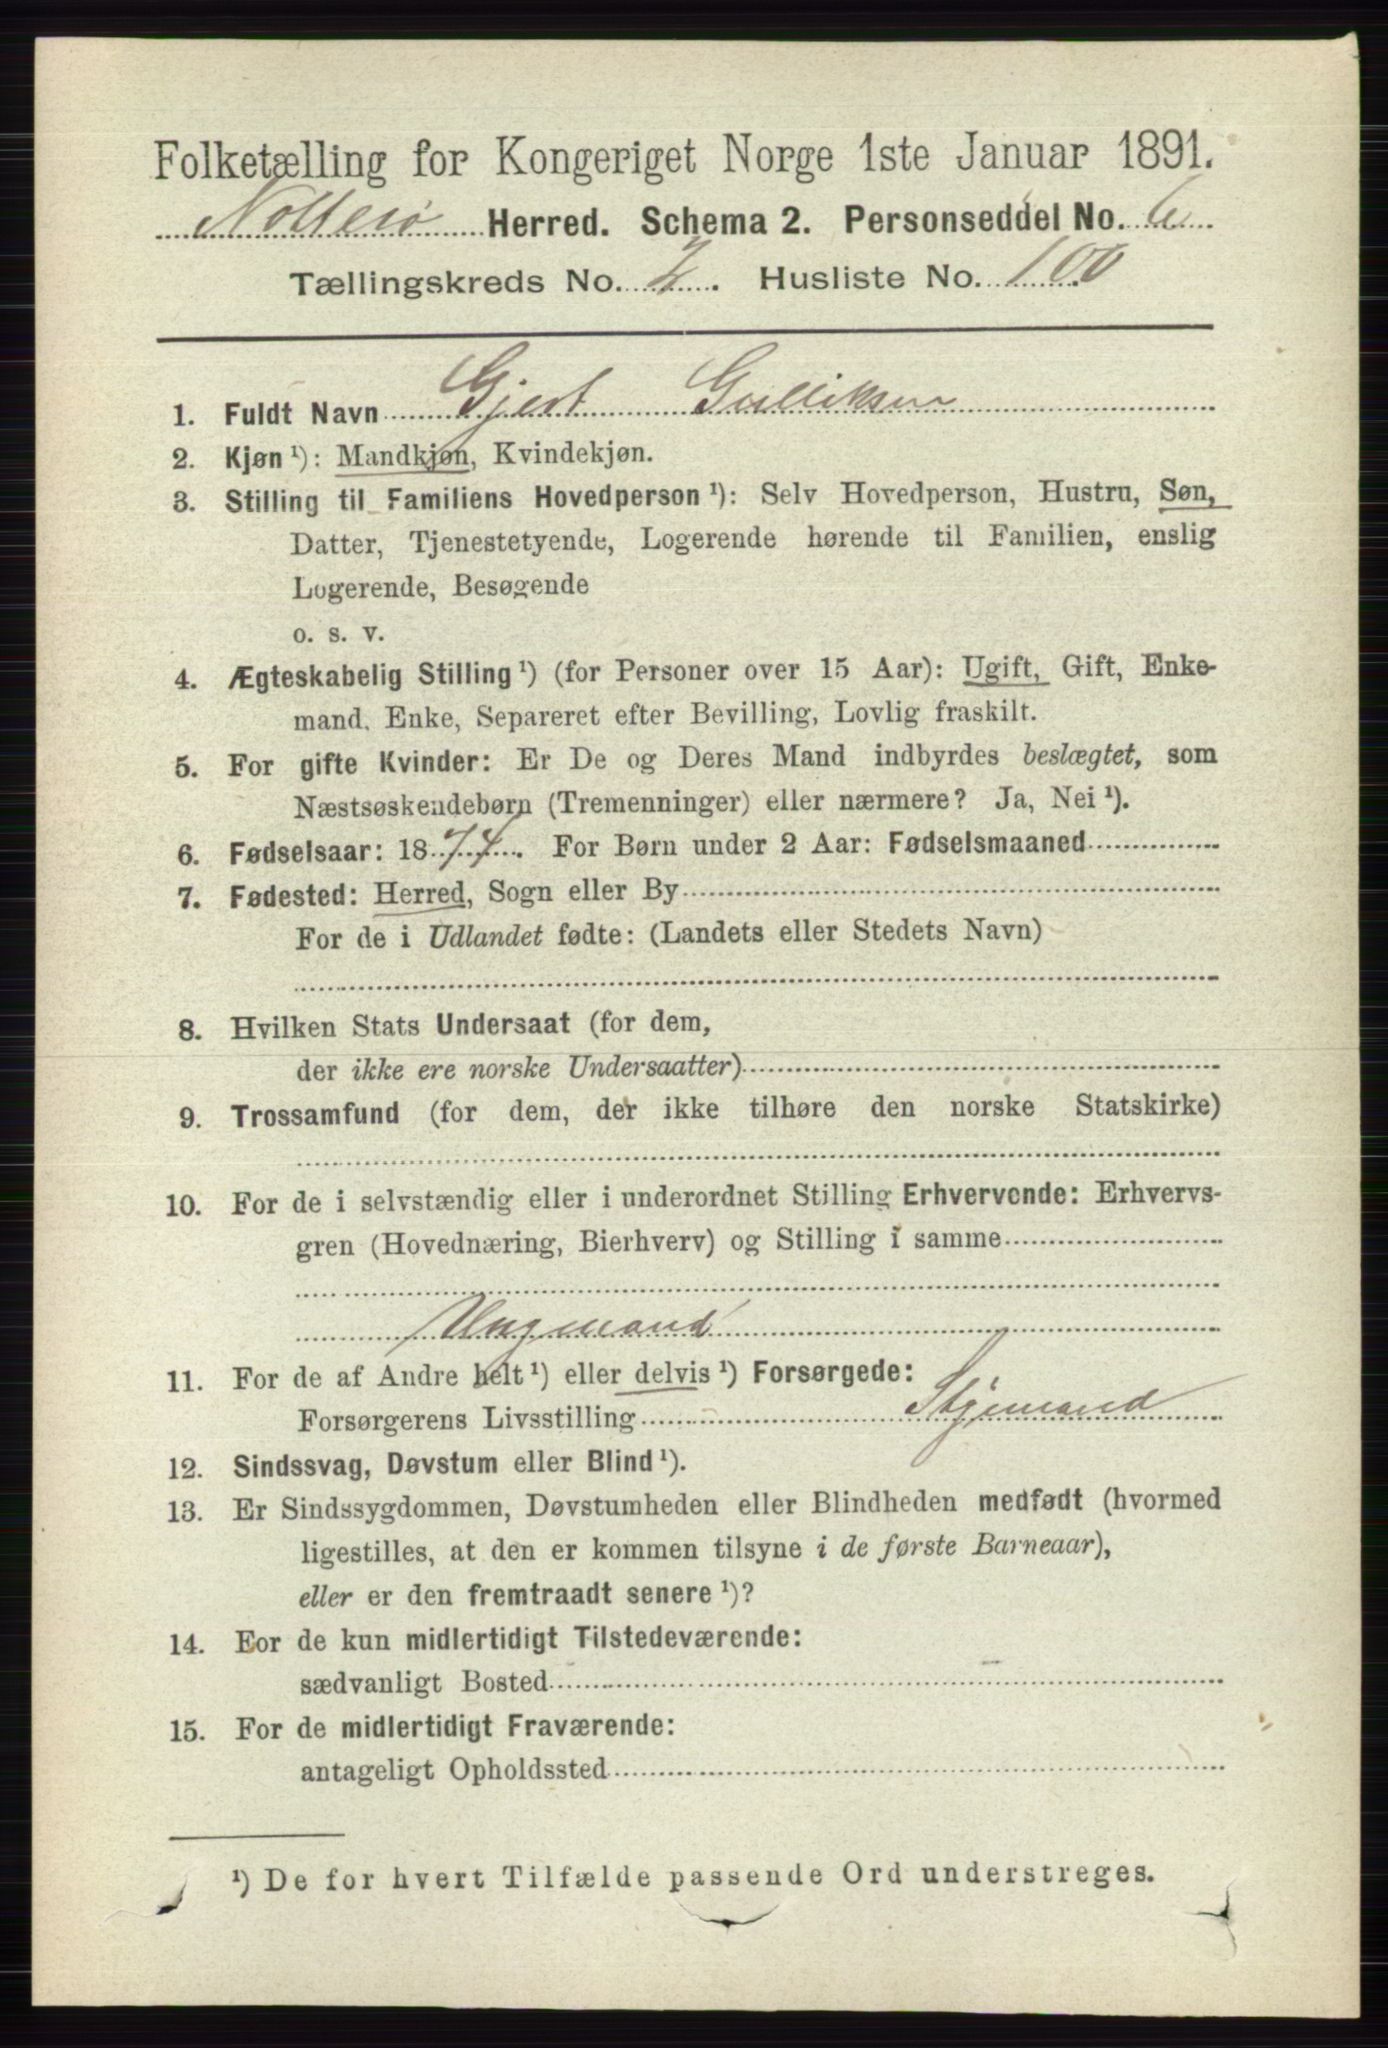 Folketælling for Kongeriget Norge 1ste Januar 1891.
Nøtterø Herred. Schema 2. Personseddel No. 6
Tællingskreds No. 2. Husliste No. 100
1. Fuldt Navn Gjert Gulliksen
2. Kjøn ¹): Mandkjøn, Kvindekjøn.
3. Stilling til Familiens Hovedperson ¹): Selv Hovedperson, Hustru, Søn,
Datter, Tjenestetyende, Logerende hørende til Familien, enslig
Logerende, Besøgende
o. s. v.
4. Ægteskabelig Stilling ¹) (for Personer over 15 Aar): Ugift, Gift, Enke-
mand, Enke, Separeret efter Bevilling, Lovlig fraskilt.
5. For gifte Kvinder: Er De og Deres Mand indbyrdes beslægtet, som
Næstsøskendebørn (Tremenninger) eller nærmere? Ja, Nei ¹).
6. Fødselsaar: 1874. For Børn under 2 Aar: Fødselsmaaned
7. Fødested: Herred, Sogn eller By
For de i Udlandet fødte: (Landets eller Stedets Navn)
8. Hvilken Stats Undersaat (for dem,
der ikke ere norske Undersaatter)
9. Trossamfund (for dem, der ikke tilhøre den norske Statskirke)
10. For de i selvstændig eller i underordnet Stilling Erhvervende: Erhvervs-
gren (Hovednæring, Bierhverv) og Stilling i samme
Ungmand
11. For de af Andre helt ¹) eller delvis ¹) Forsørgede:
Forsørgerens Livsstilling Styrmand
12. Sindssvag, Døvstum eller Blind ¹).
13. Er Sindssygdommen, Døvstumheden eller Blindheden medfødt (hvormed
ligestilles, at den er kommen tilsyne i de første Barneaar),
eller er den fremtraadt senere ¹)?
14. For de kun midlertidigt Tilstedeværende:
sædvanligt Bosted
15. For de midlertidigt Fraværende:
antageligt Opholdssted
¹) De for hvert Tilfælde passende Ord understreges.